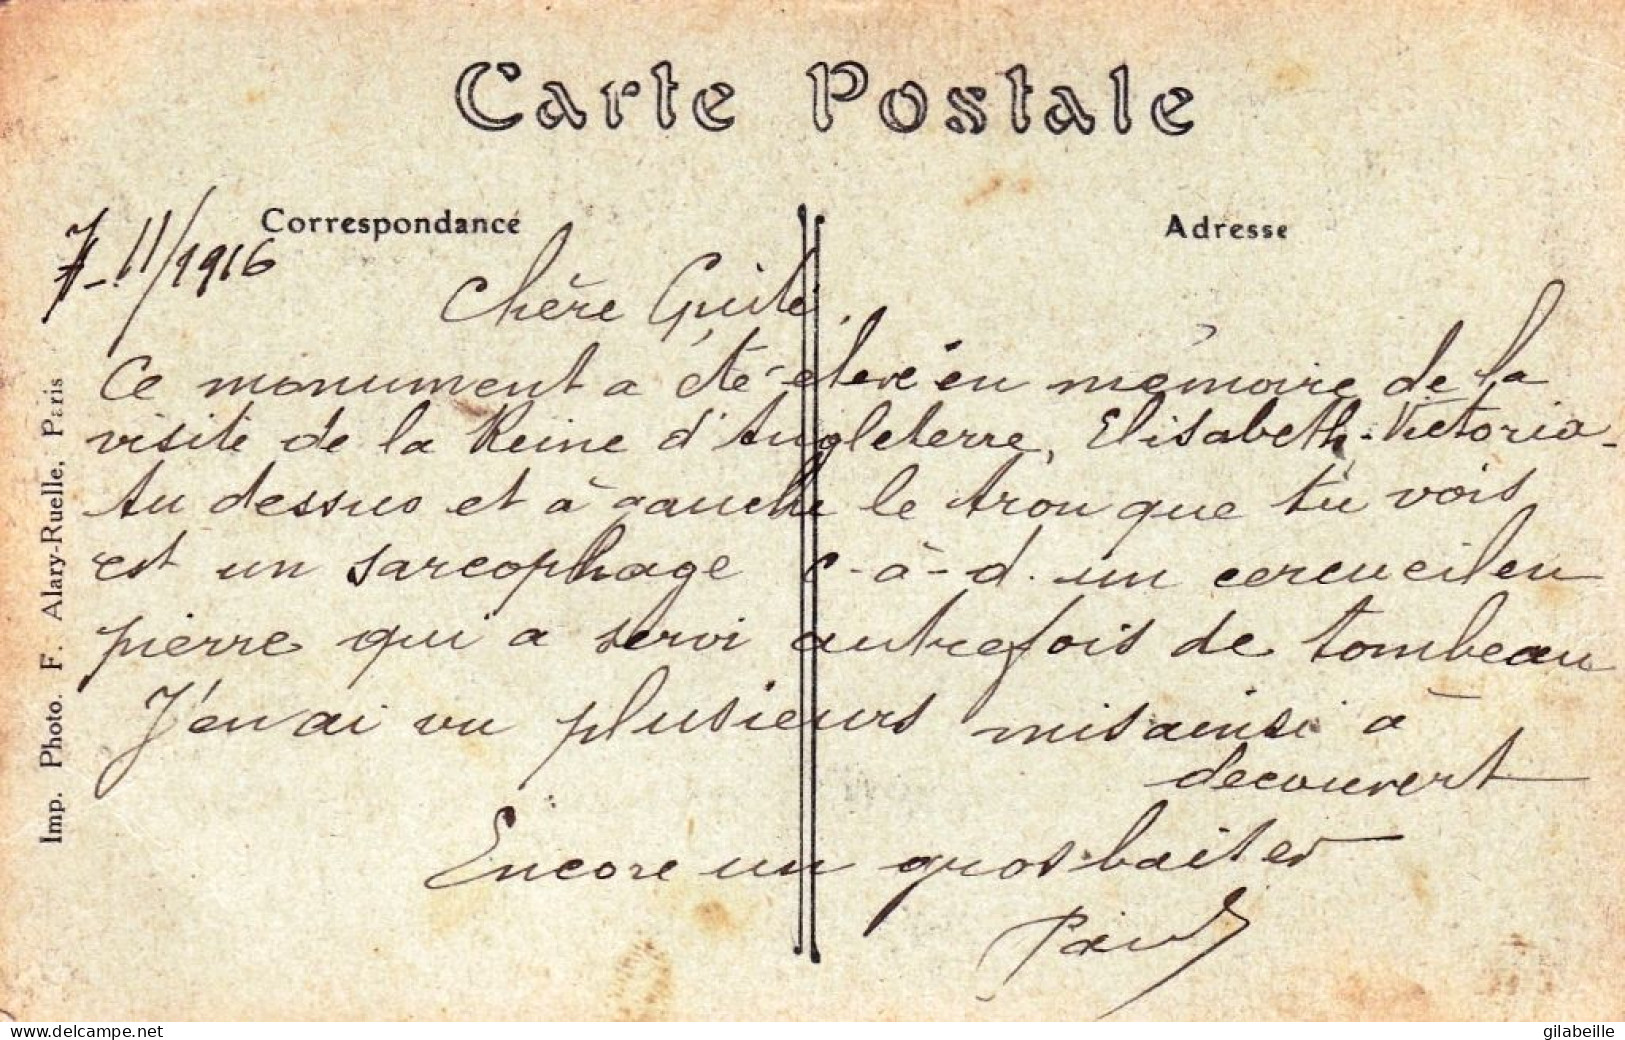 Carte Postale
Correspondance
Adresse
7-11/1916
Chère Guite,
Ce monument a été élevé en mémoire de la
visite de la Reine d'Angleterre, Elisabeth-Victoria-
Au dessus et à gauche le tron que tu vois
est un sarcophage c-à-d. un cercueil en
pierre qui a servi autrefois de tombeau
J'en ai vu plusieurs mis ainsi à
decouvert
Encore un gros
Paul
Imp. Photo. F. Alary-Ruelle, Paris
www.delcampe.net
gilabeille